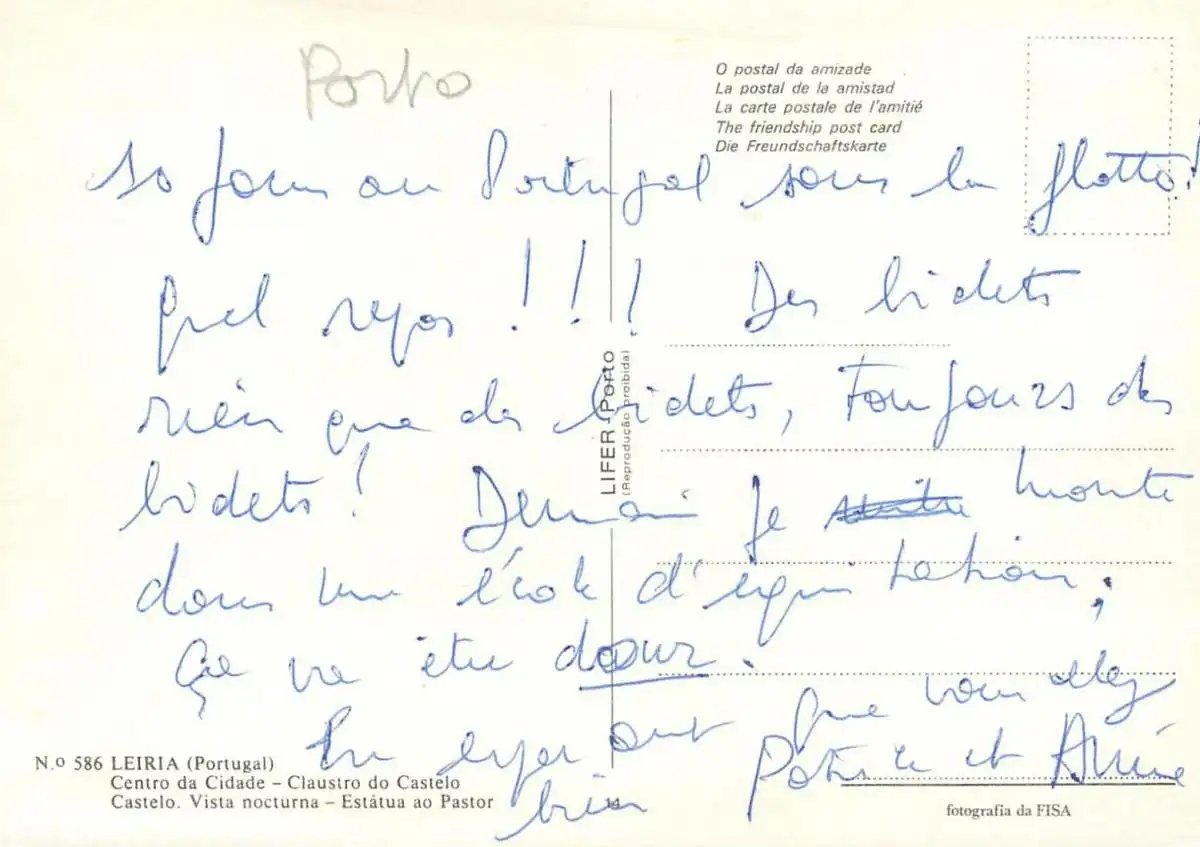 Porto
O postal da amizade
La postal de la amistad
La carte postale de l'amitié
The friendship post card
Die Freundschaftskarte
10 jours au Portugal sous la flotte!
Quel repos !!! Des bidets
rien que des bidets, Toujours des
bidets! Demain je monte
dans une école d'equitation;
Ça va être doux.
En esperant que vous allez
bien
Patrice et Annie
LIFER-Porto
(Reprodução proibida)
N.º 586 LEIRIA (Portugal)
Centro da Cidade – Claustro do Castelo
Castelo. Vista nocturna – Estátua ao Pastor
fotografia da FISA